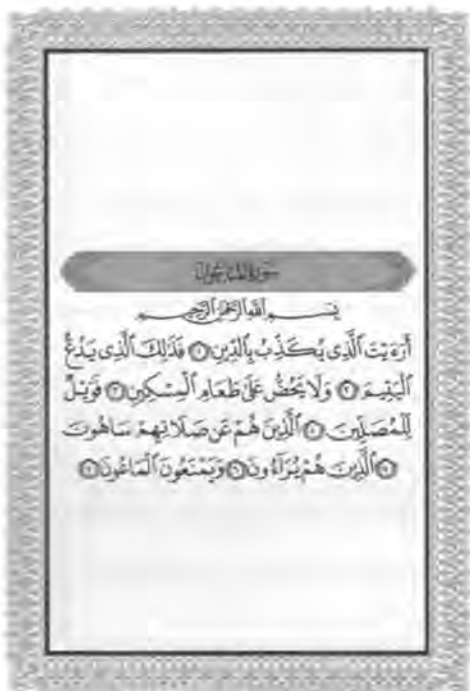 سُورَةُ المَاعُونَ
بِسْمِ اللَّهِ الرَّحْمَٰنِ الرَّحِيمِ
أَرَءَيْتَ ٱلَّذِى يُكَذِّبُ بِٱلدِّينِ فَذَٰلِكَ ٱلَّذِى يَدُعُّ
ٱلْيَتِيمَ وَلَا يَحُضُّ عَلَىٰ طَعَامِ ٱلْمِسْكِينِ فَوَيْلٌ
لِّلْمُصَلِّينَ ٱلَّذِينَ هُمْ عَن صَلَاتِهِمْ سَاهُونَ
ٱلَّذِينَ هُمْ يُرَآءُونَ وَيَمْنَعُونَ ٱلْمَاعُونَ